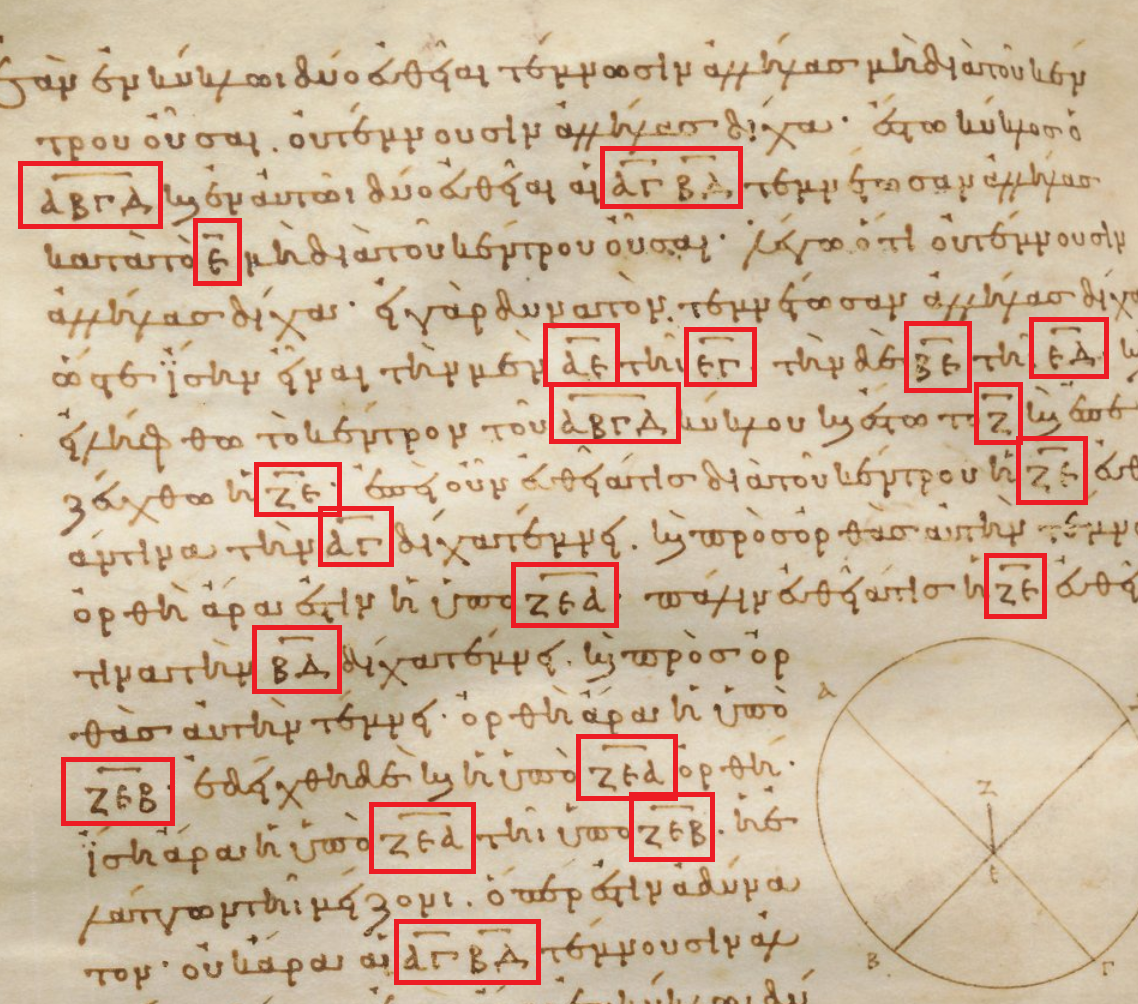 Ἐὰν ἐν κύκλωι δύο εὐθεῖαι τέμνωσιν ἀλλήλας μὴ διὰ τοῦ κέν
τρου οὖσαι. οὐ τέμνουσιν ἀλλήλας δίχα· ἔστω κύκλος ὁ
ΑΒΓΔ καὶ ἐν αὐτῶι δύο εὐθεῖαι αἱ ΑΓ ΒΔ τεμνέτωσαν ἀλλήλας
κατὰ τὸ Ε μὴ διὰ τοῦ κέντρου οὖσαι· λέγω ὅτι οὐ τέμνουσιν
ἀλλήλας δίχα· εἰ γὰρ δυνατὸν. τεμνέτωσαν ἀλλήλας δίχα
ὥστε ἴσην εἶναι τὴν μὲν ΑΕ τῆι ΕΓ τὴν δὲ ΒΕ τῆι ΕΔ
εἰλήφθω τὸ κέντρον τοῦ ΑΒΓΔ κύκλου καὶ ἔστω τὸ Ζ καὶ ἐπε
ζεύχθω ἡ ΖΕ· ἐπεὶ οὖν εὐθεῖά τις διὰ τοῦ κέντρου ἡ ΖΕ εὐθ
άν τινα τὴν ΑΓ δίχα τέμνει. καὶ πρὸς ὀρθὰς αὐτὴν τέμν
ὀρθὴ ἄρα ἐστὶν ἡ ὑπὸ ΖΕΑ· πάλιν εὐθεῖά τις ἡ ΖΕ εὐθεῖ
τινα τὴν ΒΔ δίχα τέμνει. καὶ πρὸς ὀρ
θὰς αὐτὴν τέμνει· ὀρθὴ ἄρα ἡ ὑπὸ
ΖΕΒ· ἐδείχθη δὲ καὶ ἡ ὑπὸ ΖΕΑ ὀρθή·
ἴση ἄρα ἡ ὑπὸ ΖΕΑ τῆι ὑπὸ ΖΕΒ. ἡ ἐ
λάττων τῆι μείζονι. ὅπερ ἐστὶν ἀδύνα
τον· οὐκ ἄρα αἱ ΑΓ ΒΔ τέμνουσιν ἀλ
Α
Ζ
Ε
Β
Γ